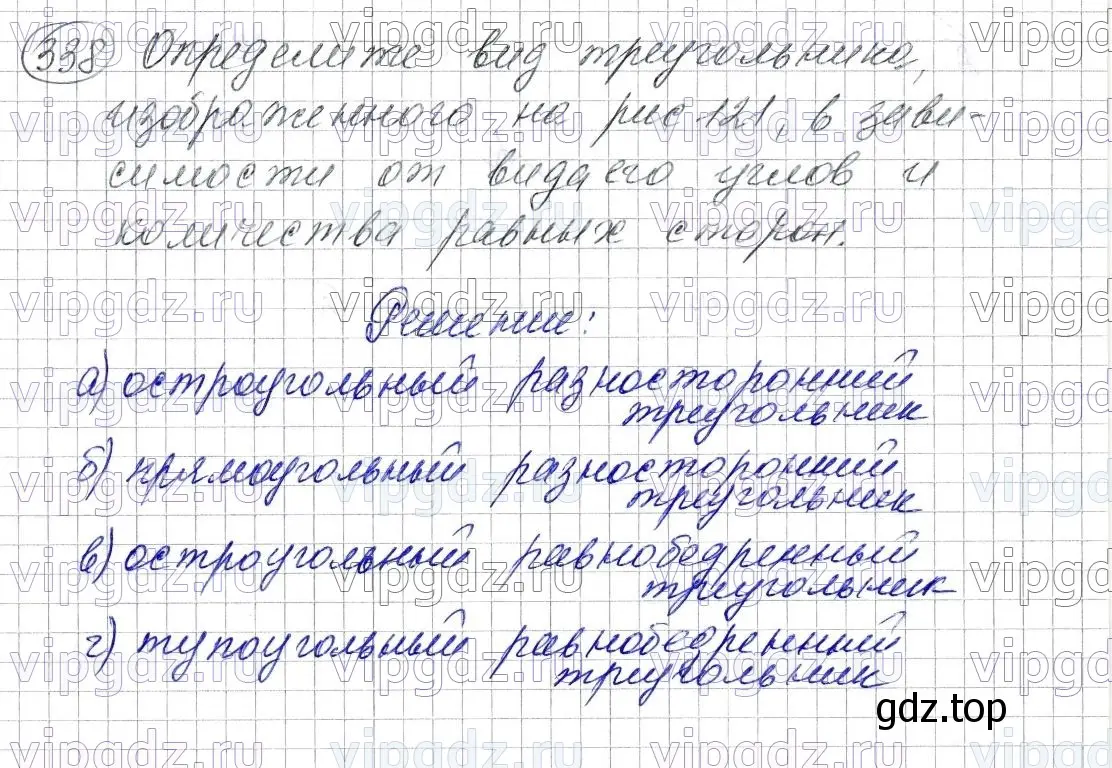 338 Определите вид треугольника,
изображенного на рис 121, в зави-
симости от вида его углов и
количества равных сторон.
Решение:
а) остроугольный разносторонний
треугольник
б) прямоугольный разносторонний
треугольник
в) остроугольный равнобедренный
треугольник
г) тупоугольный равнобедренный
треугольник
gdz.top